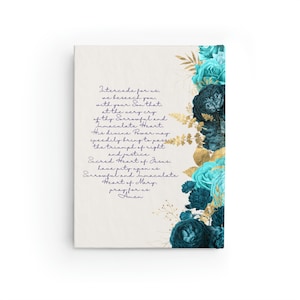 Intercede for us
we beseech you
with your Son that
at the very cry
of thy Sorrowful and
Immaculate Heart
His divine Power may
speedily bring to pass
the triumph of right
and justice
Sacred Heart of Jesus
have pity upon us
Sorrowful and Immaculate
Heart of Mary
pray for us
Amen